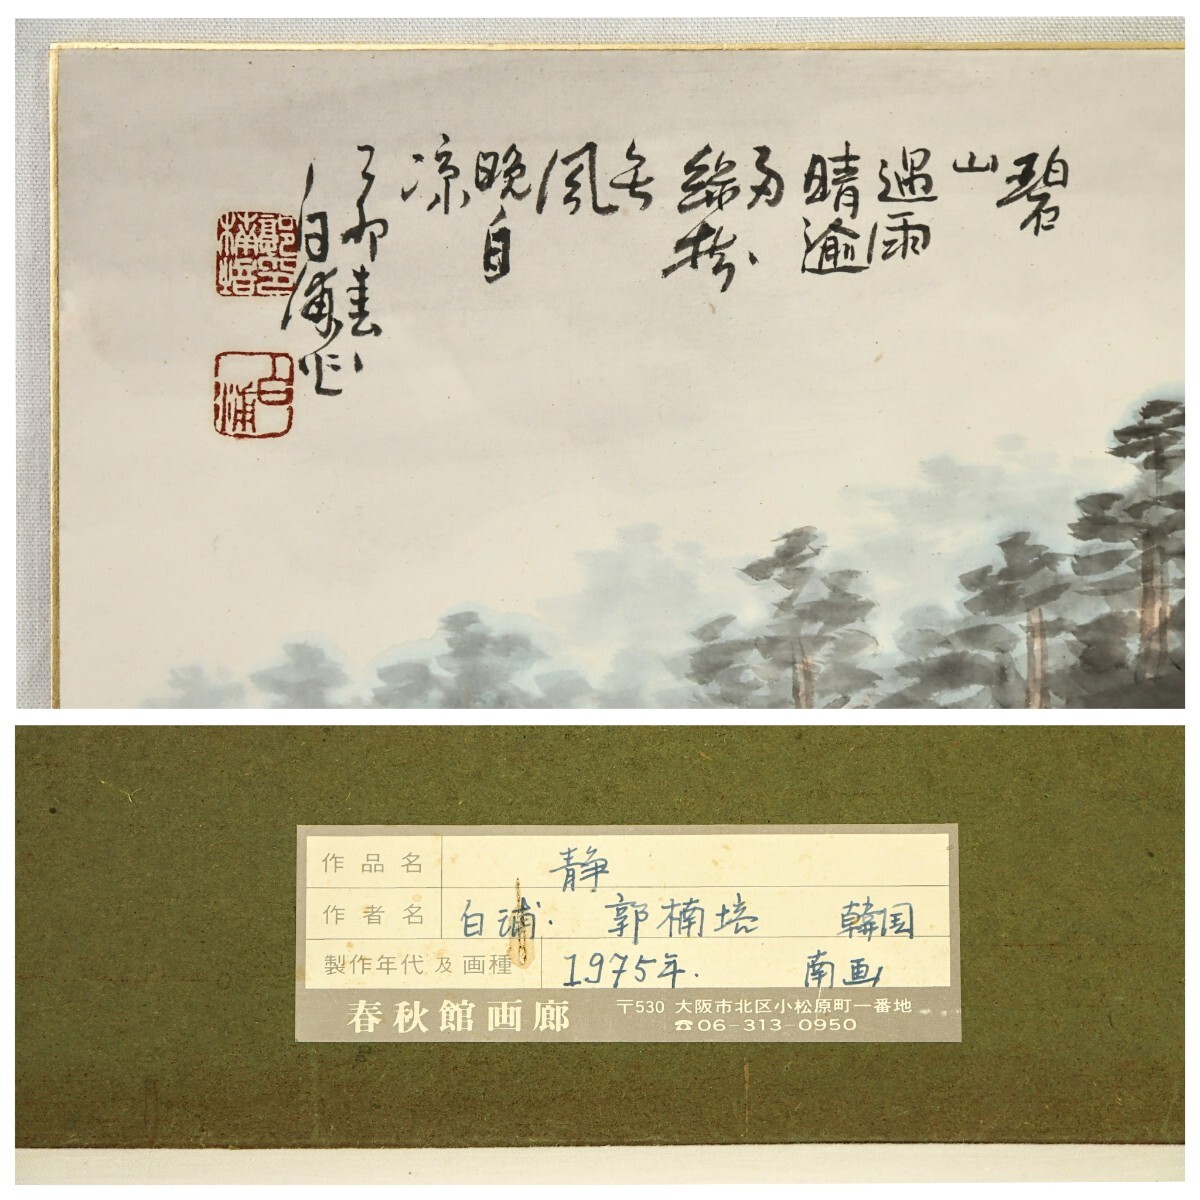 碧
山
過雨
晴逾
好
綠樹
無
風
晚自
凉
乙卯春
白浦
郭印
楠培
白浦
作品名 静
作者名 白浦・郭楠培 韓国
製作年代及画種 1975年. 南画
春秋館画廊
〒530 大阪市北区小松原町一番地
☎06-313-0950